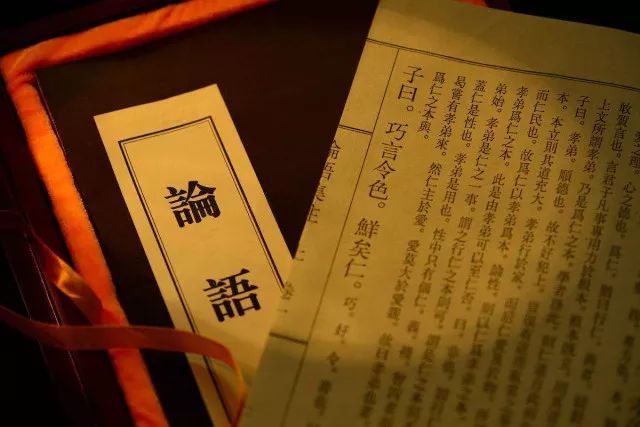 心之德也。爲仁。猶曰行仁。
敢質言也。言君子凡事專用力於根本。根本既立
上文所謂孝弟。乃是爲仁之本。學者務此。
子曰。孝弟。順德也。故不好犯上。
本。本立則其道充大。孝弟行於家。
而仁民也。故爲仁以孝弟爲本。論性。則以仁爲孝弟
孝弟爲仁之本。此是由孝弟可以至仁否。曰。非也。
弟始。孝弟是仁之一事。謂之行仁之本則可。謂是仁之本
蓋仁是性也。孝弟是用也。性中只有個仁。義。禮。智四者
曷嘗有孝弟來。然仁主於愛。愛莫大於愛親。故曰孝弟也者
爲仁之本與。
子曰。巧言令色。鮮矣仁。巧。好。令。善也。
論語集注 卷一
論語